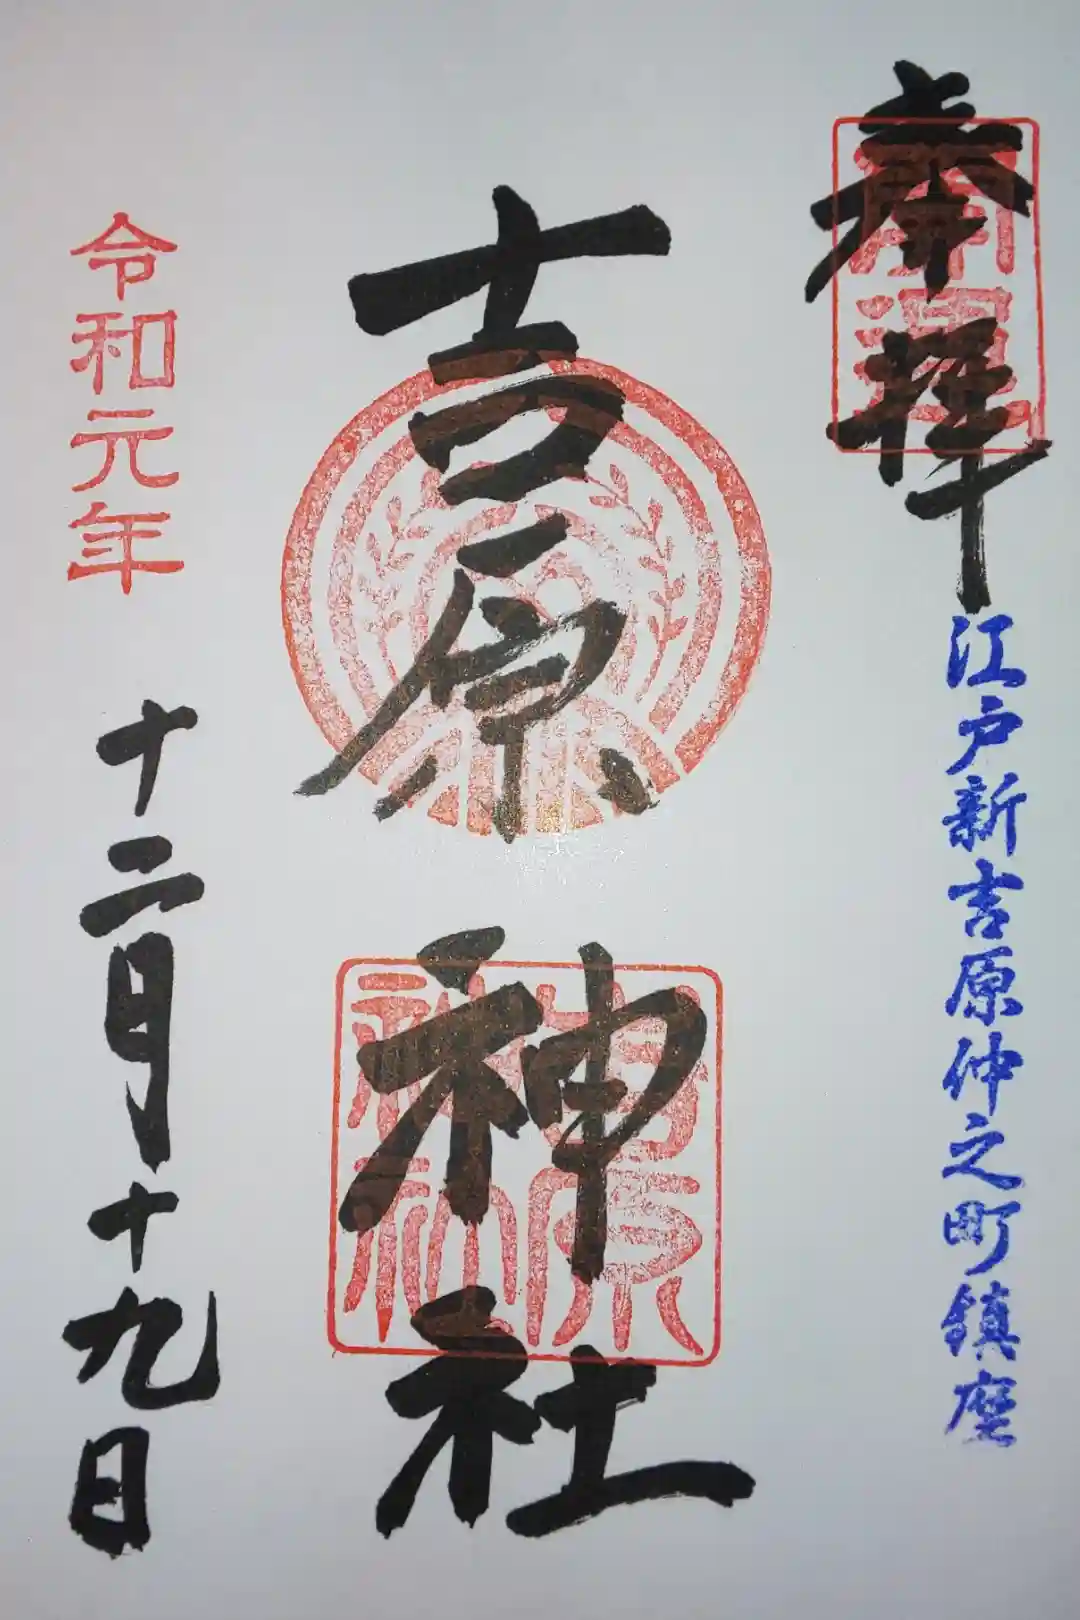 奉拝
開運
江戸新吉原仲之町鎮座
吉原神社
吉原
神社
令和元年
十二月十九日